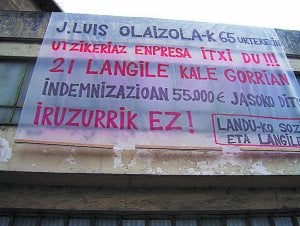 J. LUIS OLAIZOLA-K 65 URTEREKIN
UTZIKERIAZ ENPRESA ITXI DU!!!
21 LANGILE KALE GORRIAN
INDEMNIZAZIOAN 55.000 € JASOKO DIT
IRUZURRIK EZ!
LANDU-KO SOZ
ETA LANGILE